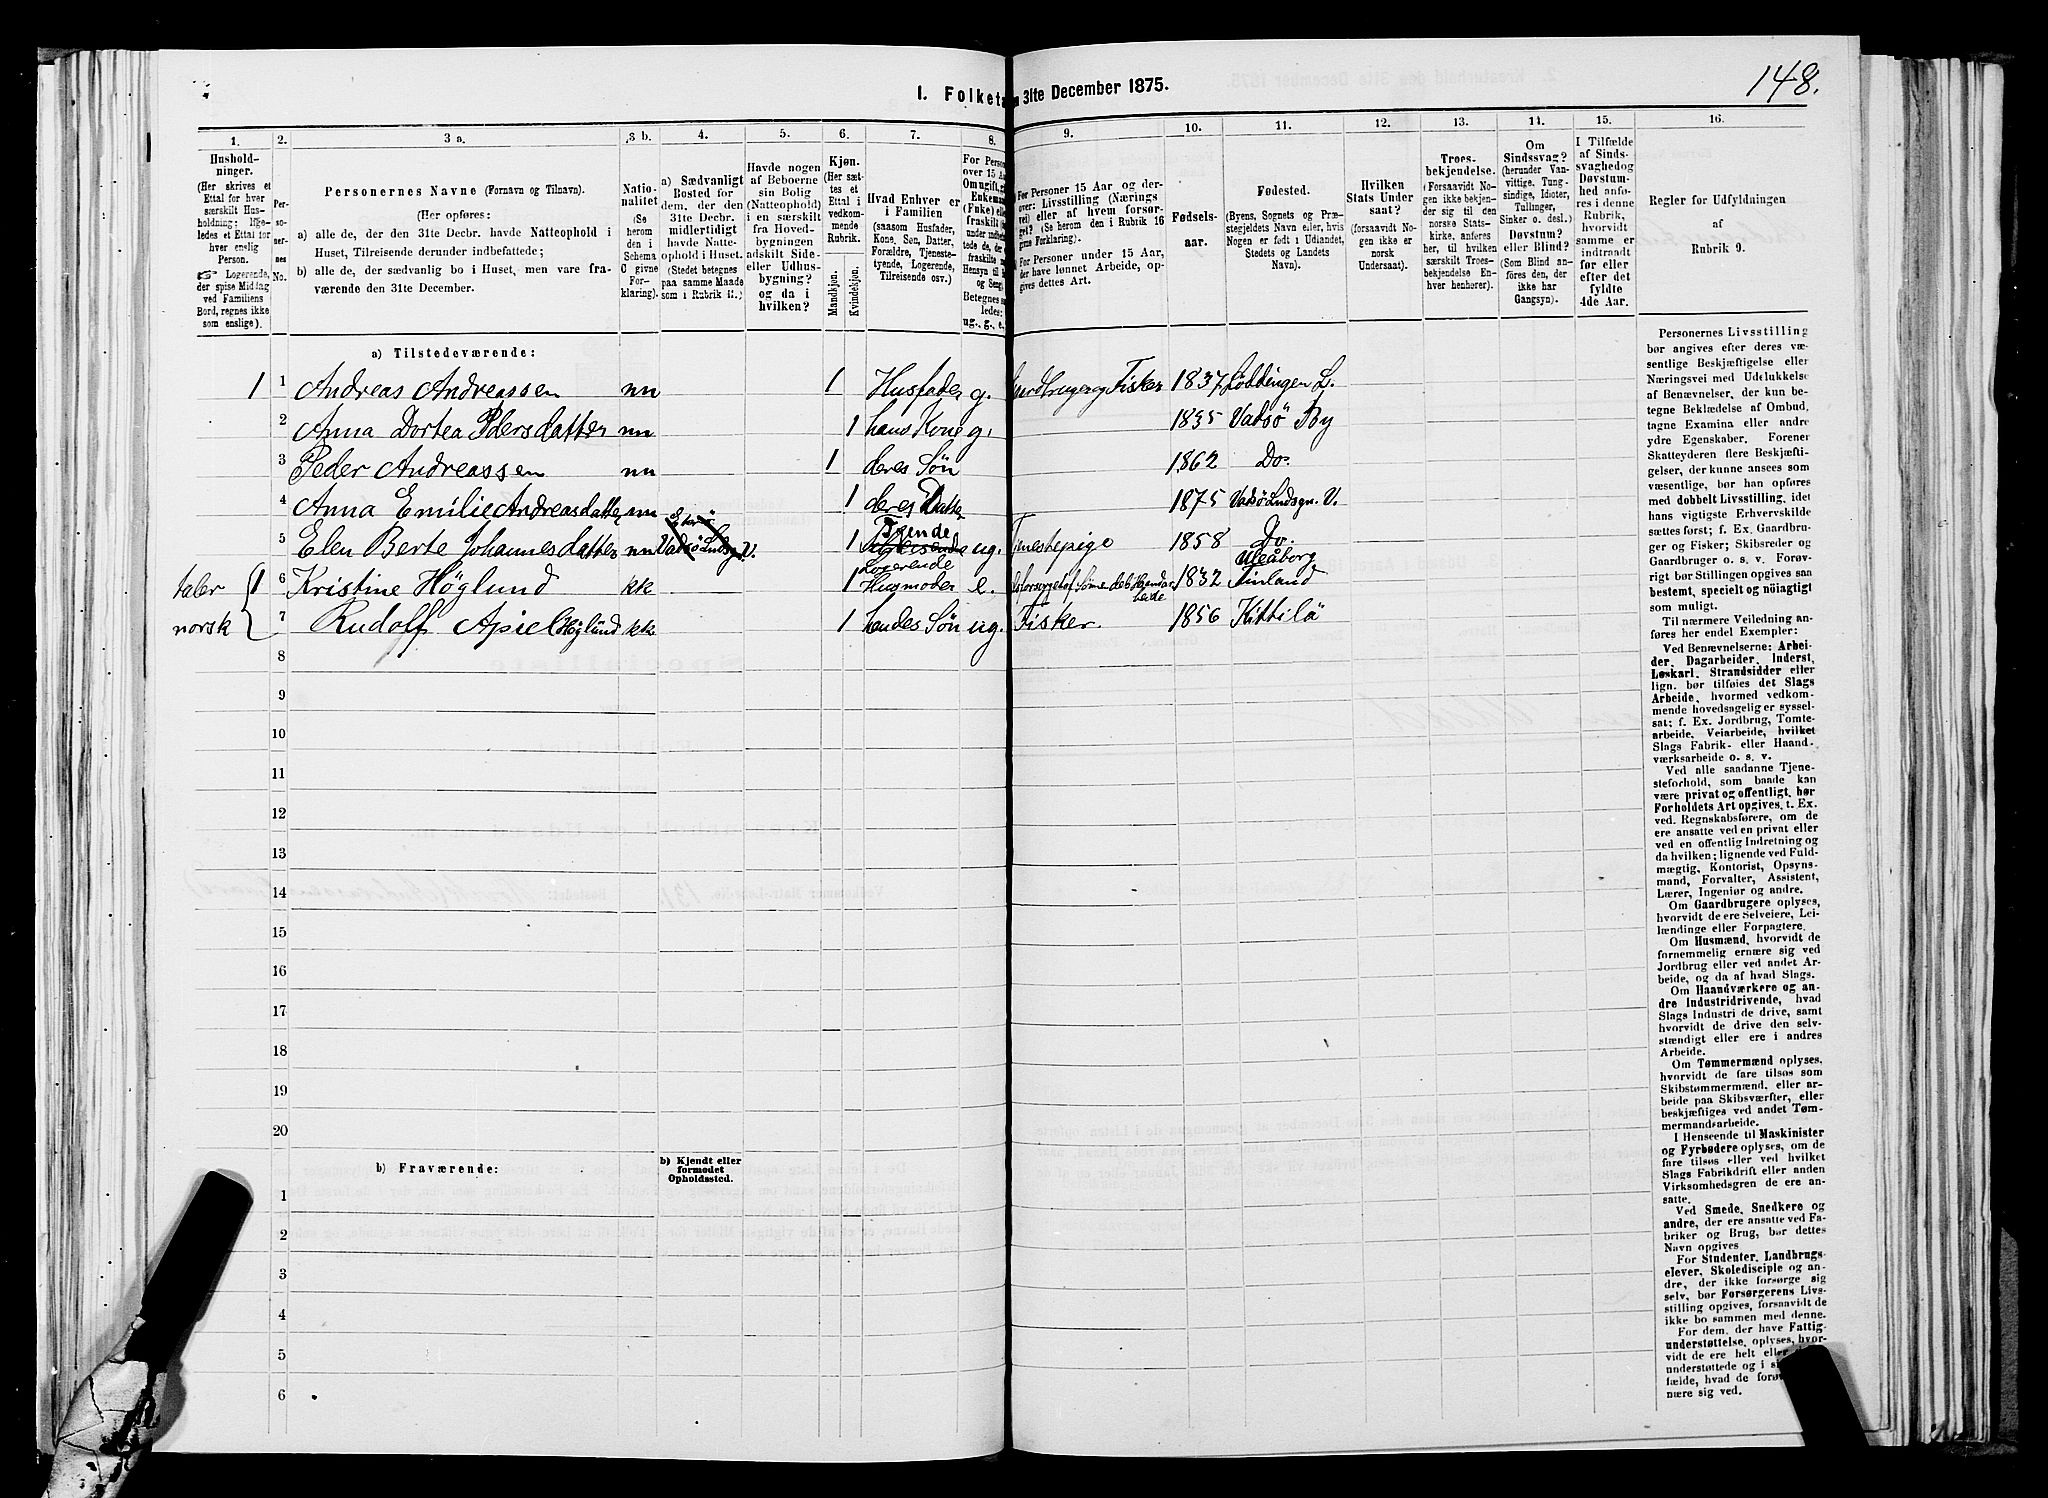 148.
I. Folketa
n 31te December 1875.
1.
2.
3 a.
3 b.
4.
5.
6.
7.
8.
9.
10.
11.
12.
13.
14.
15.
16.
Hushold-
ninger.
(Her skrives et
Ettal for hver
særskilt Hus-
holdning; lige-
ledes et Ettal for
hver enslig
Person.
☞ Logerende,
der spise Middag
ved Familiens
Bord, regnes ikke
som enslige).
Per-
so-
ner-
nes
No.
Personernes Navne (Fornavn og Tilnavn).
(Her opføres:
a) alle de, der den 31te Decbr. havde Natteophold i
Huset, Tilreisende derunder indbefattede;
b) alle de, der sædvanlig bo i Huset, men vare fra-
værende den 31te December.
Natio-
nalitet
(Se
herom
den i
Schema
C givne
For-
klaring).
a) Sædvanligt
Bosted for
dem, der den
31te Decbr.
midlertidigt
havde Natte-
ophold i Huset.
(Stedet betegnes
paa samme Maade
som i Rubrik 11.)
Havde nogen
af Beboerne
sin Bolig
(Natteophold)
i en særskilt
fra Hoved-
bygningen
adskilt Side-
eller Udhus-
bygning?
og da i
hvilken?
Kjøn.
(Her sæt-
tes et
Ettal i
vedkom-
mende
Rubrik.
Mandkjøn.
Kvindekjøn.
Hvad Enhver er
i Familien
(saasom Husfader,
Kone, Søn, Datter,
Forældre, Tjeneste-
tyende, Logerende,
Tilreisende osv.)
For Person
over 15 Aar
Om ugift, gi
Enkemand
(Enke) elle
fraskilt
Betegnes saa
ledes:
ug., g., e.
For Personer 15 Aar og der-
over: Livsstilling (Nærings
vei) eller af hvem forsør-
get? (Se herom den i Rubrik 16
givne Forklaring).
For Personer under 15 Aar,
der have lønnet Arbeide, op-
gives dettes Art.
Fødsels-
aar.
Fødested.
(Byens, Sognets og Præ-
stegjeldets Navn eller, hvis
Nogen er født i Udlandet,
Stedets og Landets
Navn).
Hvilken
Stats Under
saat?
(forsaavidt No-
gen ikke er
norsk
Undersaat).
Troes-
bekjendelse.
(Forsaavidt No-
gen ikke bekjen-
der sig til den
norske Stats-
kirke, anføres
her, til hvilken
særskilt Troes-
bekjendelse En-
hver henhører).
Om
Sindssvag?
(herunder Van-
vittige, Tung-
sindige, Idioter,
Tullinger,
Sinker o. desl.)
Døvstum?
eller Blind?
(Som Blind an-
føres den, der
ikke har
Gangsyn).
I Tilfælde
af Sinds-
svaghed og
Døvstum-
hed anfø-
res i denne
Rubrik,
hvorvidt
samme er
indtraadt
før eller
efter det
fyldte
4de Aar.
Regler for Udfyldningen
af
Rubrik 9.
a) Tilstedeværende:
1 1 Andreas Andreassen nn 1 Husfader g. Gardbruger og Fisker 1837 Löddingen L.
2 Anna Dortea Pedersdatter nn 1 hans Kone g. 1835 Vadsö By
3 Peder Andreassen nn 1 deres Søn 1862 Do.
4 Anna Emilie Andreasdatter nn 1 deres Datter 1875 Vadsö Landsgn. V.
5 Elen Berte Johannesdatter nn Vadsö Landsgn. V. 1 Tyende ug. Tjenestepige 1858 Do.
taler 1 6 Kristine Höglund kk 1 Logerende Husmoder e. 1832 Uleåborg Finland
norsk 7 Rudolf Apiel Höglund kk 1 hendes Søn ug. Fisker. 1856 Kittilä
8
9
10
11
12
13
14
15
16
17
18
19
20
b) Fraværende:
b) Kjendt eller
formodet
Opholdssted.
1
2
3
4
5
6
Personernes Livsstilling
bør angives efter deres væ-
sentlige Beskjæftigelse eller
Næringsvei med Udelukkelse
af Benævnelser, der kun be-
tegne Beklædelse af Ombud,
tagne Examina eller andre
ydre Egenskaber. Forener
Skatteyderen flere Beskjæfti-
gelser, der kunne ansees som
væsentlige, bør han opføres
med dobbelt Livsstilling, idet
hans vigtigste Erhvervskilde
sættes først; f. Ex. Gaardbru-
ger og Fisker; Skibsreder og
Gaardbruger o. s. v. Forøv-
rigt bør Stillingen opgives saa
bestemt, specielt og nöiagtig
som muligt.
Til nærmere Veiledning an-
føres her endel Exempler:
Ved Benævnelserne: Arbei-
der, Dagarbeider, Inderst,
Løskarl, Strandsidder eller
lign. bør tilføies det Slags
Arbeide, hvormed vedkom-
mende hovedsagelig er syssel-
sat; f. Ex. Jordbrug, Tomte-
arbeide, Veiarbeide, hvilket
Slags Fabrik- eller Haand-
værksarbeide o. s. v.
Ved alle saadanne Tjene-
steforhold, som baade kan
være privat og offentligt, bør
Forholdets Art opgives, t. Ex.
ved. Regnskabsførere, om de
ere ansatte ved en privat eller
ved en offentlig Indretning og
da hvilken; lignende ved Fuld-
mægtig, Kontorist, Opsyns-
mand, Forvalter, Assistent,
Lærer, Ingeniør og andre.
Om Gaardbrugere oplyses,
hvorvidt de ere Selveiere, Lei-
lændinge eller Forpagtere.
Om Husmænd, hvorvidt de
fornemmelig ernære sig ved
Jordbrug eller ved andet Ar-
beide, og da af hvad Slags.
Om Haandværkere og an-
dre Industridrivende, hvad
Slags Industri de drive, samt
hvorvidt de drive den selv-
stændigt eller ere i andres
Arbeide.
Om Tømmermænd oplyses,
hvorvidt de fare tilsøs som
Skibstømmermænd, eller ar-
beide paa Skibsværfter, eller
beskjæftiges ved andet Tøm-
mermandsarbeide.
I Henseende til Maskinister
og Fyrbødere oplyses, om de
fare tilsøs eller ved hvilket
Slags Fabrikdrift eller anden
Virksomhedsgren de ere an-
satte.
Ved Smede, Snedkere og
andre, der ere ansatte ved Fa-
briker og Brug, bør dettes
Navn opgives
For Studenter, Landbrugs-
elever, Skoledisciple og an-
dre, der ikke forsørge sig
selv, bør Forsørgerens Livs-
stilling opgives, forsaavidt de
ikke bo sammen med denne.
For dem, der have Fattig-
understøttelse, oplyses, hvor-
vidt de ere helt eller
understøttede og i si
fælde, hvad de forøv
nære sig ved.